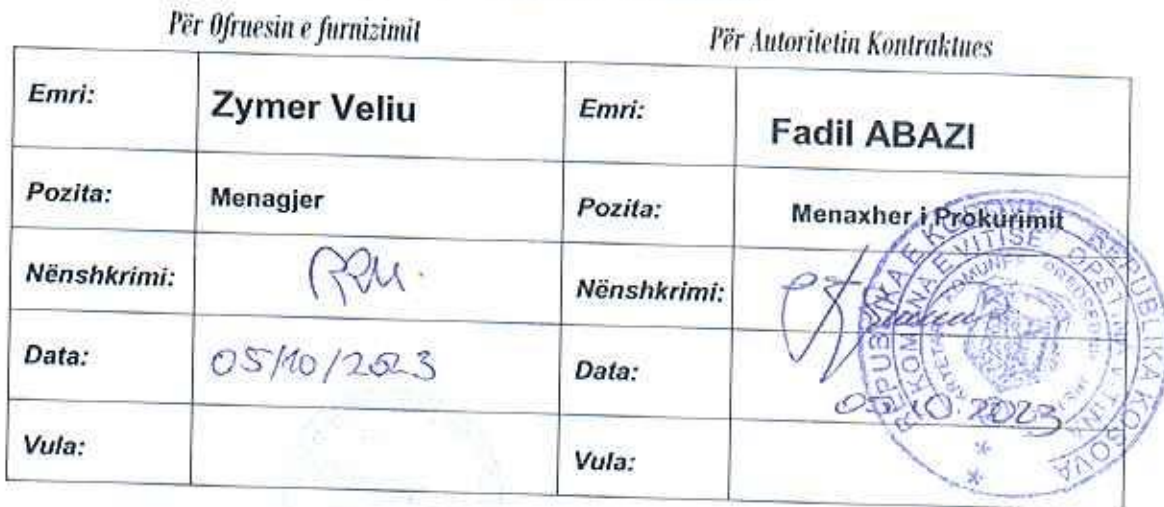 Për Ofruesin e furnizimit
Për Autoritetin Kontraktues
Emri: Zymer Veliu Emri: Fadil ABAZI
Pozita: Menagjer Pozita: Menaxher i Prokurimit
Nënshkrimi: Nënshkrimi:
Data: 05/10/2023 Data: 05.10.2023
Vula: Vula:
REPUBLIKA E KOSOVËS REPUBLIKA KOSOVA
KOMUNA E VITISË